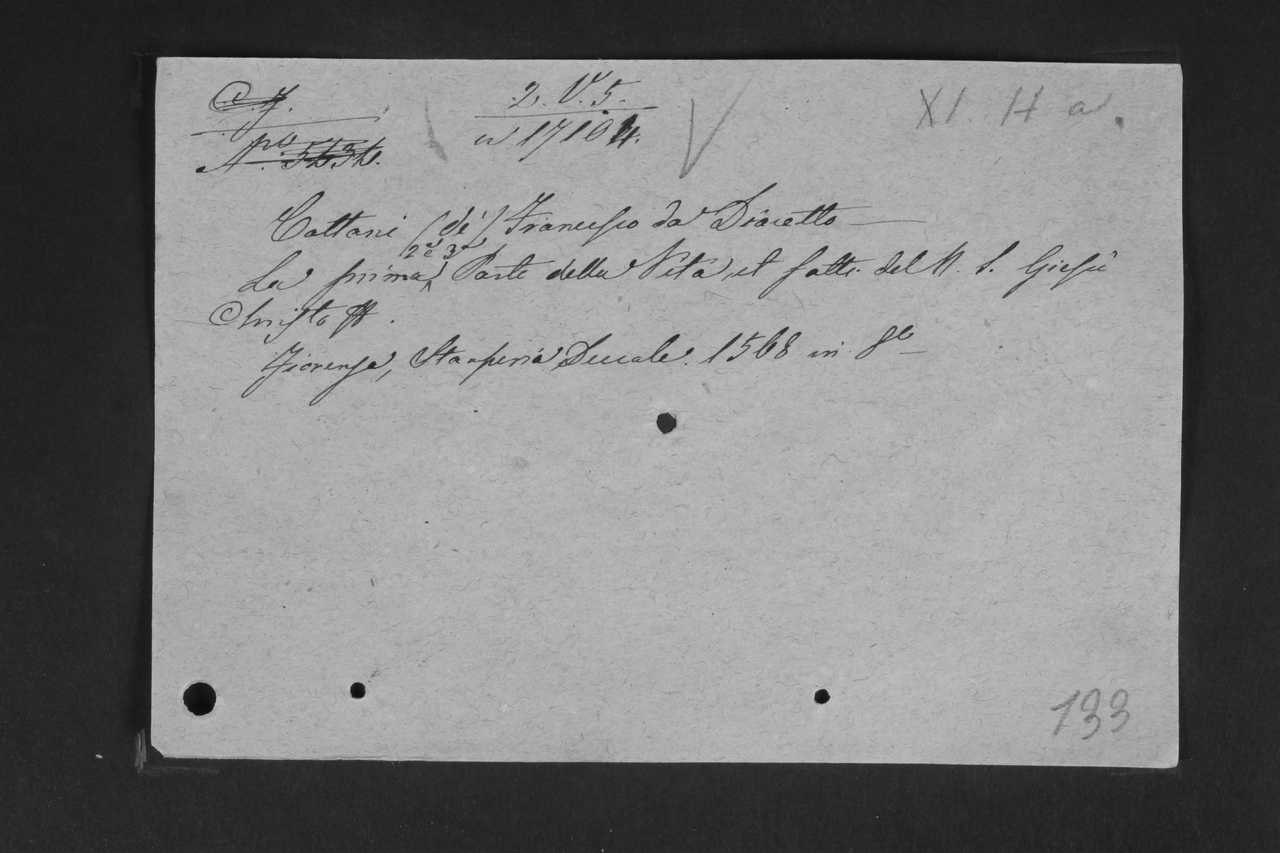 C. J.
Nro. 5454.
2. V. 5.
n 17104.
XI. H a.
Cattani (de') Francesco da Diacetto —
2a e 3a
La prima Parte della Vita, et fatti del N. S. Giesù
Christo
Fiorenza, Stamperia Ducale. 1568 in 8o
133